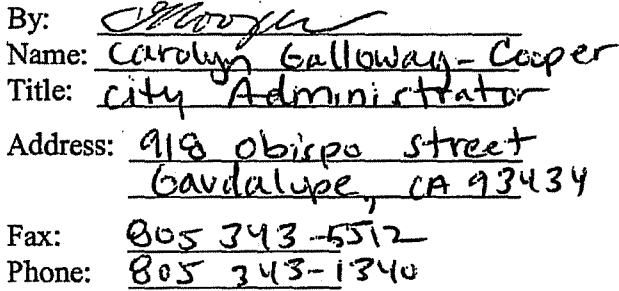 By:
Name: Carolyn Galloway-Cooper
Title: City Administrator
Address: 918 Obispo Street
Gavdalupe, CA 93434
Fax: 805 343-5512
Phone: 805 343-1340